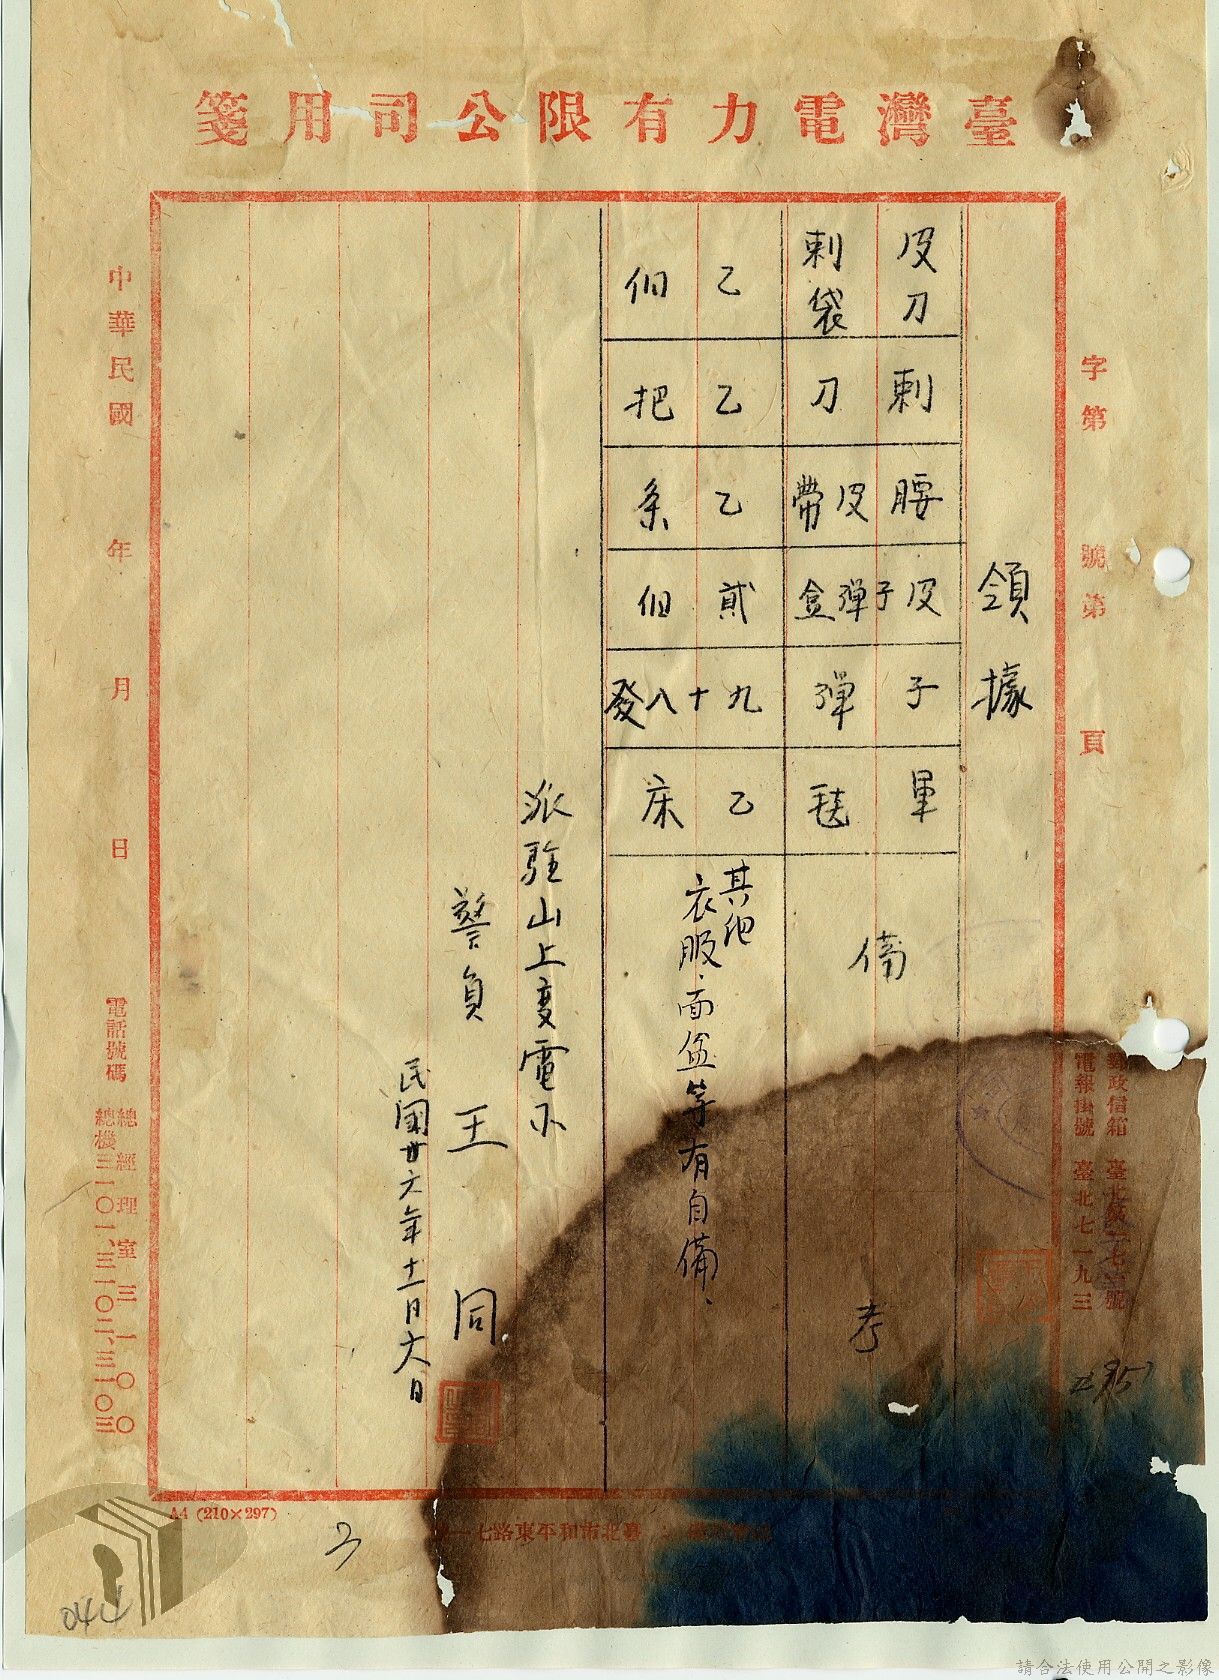 臺灣電力有限公司用箋
字第　號第　頁
郵政信箱　臺北
電報掛號　臺北七一九三
領據
皮刀刺袋　乙個
刺刀　乙把
腰皮帶　乙条
皮子彈盒　貳個
子彈　九十八發
軍毯　乙床
備考
其他衣服、面盆等有自備、
派駐山上變電所
警員　王　同
民國廿六年十二月六日
中華民國　年　月　日
電話號碼
總經理室三一〇〇
總機三一〇一、三一〇二、三一〇三
A4 (210×297)
臺北市和平東路七一
3
044
請合法使用公開之影像